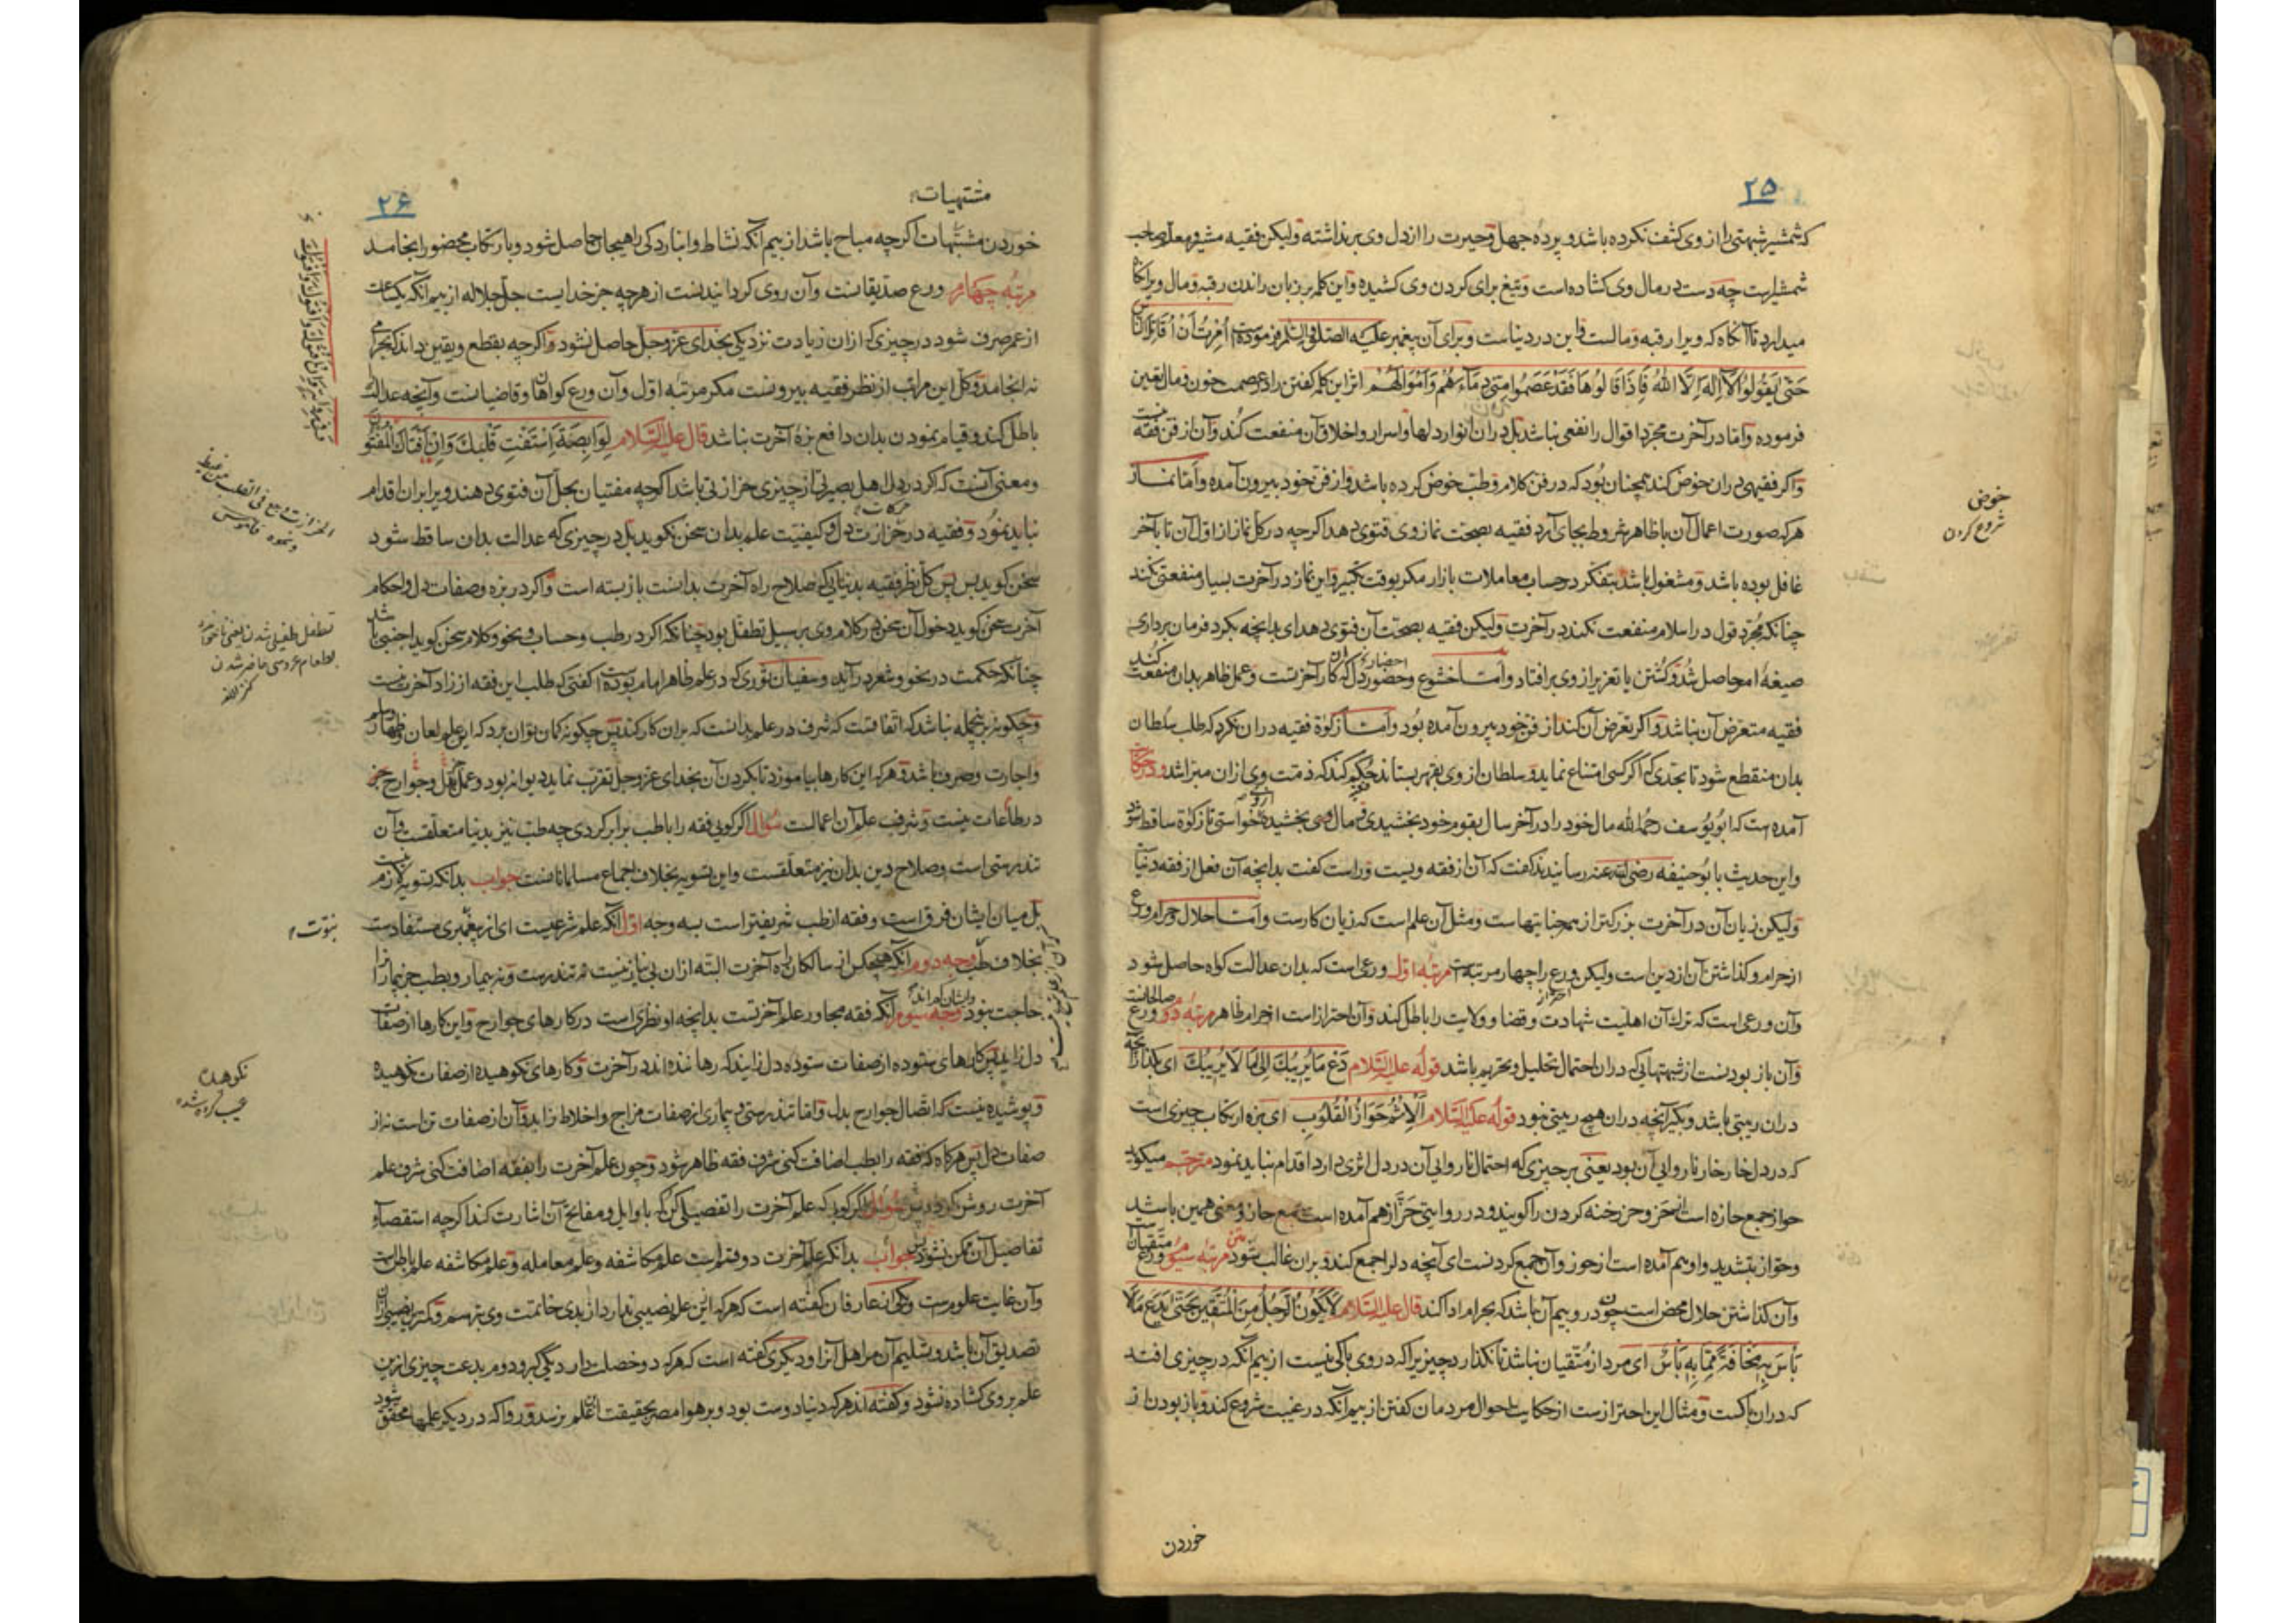 ۲۵
که شمشیر شبهتی را از وی کشف نکرده باشد و پرده جهل و حیرت را از دل وی برنداشته ولیکن فقیه مشیر
شمشیرست چه دست در مال وی کشاده است و تیغ برای کردن وی کشیده و این کلمه بر زبان راندن رقبه و مال ویرا
میدارد تا آنگاه که ویرا رقبه و مالست و این در دنیاست و برای آن پیغمبر علیه الصلوة والسلم فرموده است اُمِرْتُ أَنْ أُقَاتِلَ النَّاسَ
حَتَّى يَقُولُوا لَا إِلٰهَ إِلَّا اللهُ فَإِذَا قَالُوهَا فَقَدْ عَصَمُوا مِنِّي دِمَاءَهُمْ وَأَمْوَالَهُمْ اثر این کلمه کفتن را در عصمت خون و مال تعیین
فرموده و اما در آخرت مجرد اقوال را نفعی نباشد بل دران انوار دلها و اسرار و اخلاق آن منفعت کند و آن از فن فقه نیست
و اکر فقیهی دران خوض کند همچنان بود که در فن کلام و طب خوض کرده باشد و از فن خود بیرون آمده و أمّا نماز
هرکه صورت اعمال آن با ظاهر شروط بجای آرد فقیه بصحت نماز وی فتوی دهد اکرچه در کل نماز از اول آن تا بآخر
غافل بوده باشد و مشغول باشد بتفکر در حساب معاملات بازار مکر بوقت تکبیر و این نماز در آخرت بسیار منفعتی نکند
چنانکه مجرّد قول در اسلام منفعت نکند در آخرت ولیکن فقیه بصحت آن فتوی دهد ای بدانچه بکرد فرمان برداری
صیغهٔ امر حاصل شد و کشتن یا تعزیر از وی برافتاد و أمّا خشوع و حضور دل که کار آخرتست و عمل ظاهر بدان منفعت کند
احضار
فقیه متعرض آن نباشد و اکر تعرض آن کند از فن خود بیرون آمده بود و أمّا زکوة فقیه دران نکرد که طلب سلطان
بدان منقطع شود تا بحدی که اکر کسی امتناع نماید و سلطان از وی بقهر بستاند حکم کند که ذمت وی ازان مبرا شد و در حکایت
آمده است که ابویوسف رحمه الله مال خود را در آخر سال بقوم خود بخشیدی و مال وی بخشیده خواستی تا زکوة ساقط شود
و این حدیث بابوحنیفه رضی الله عنه رسانیدند کفت که آن از فقه ویست و راست کفت بدانچه آن فعل از فقه دنیا
ولیکن زیان آن در آخرت بزرکتر از همه جنایتهاست و مثل آن علم است که زیان کارست و أمّا حلال و حرام ورع
از حرام و کذاشتن آن از دین است ولیکن ورع را چهار مرتبه است مرتبهٔ اول ورعی است که بدان عدالت کواه حاصل شود
و آن ورعی است که ترک آن اهلیت شهادت و قضا و ولایت را باطل کند و آن احتراز است از حرام ظاهر مرتبهٔ دوم ورع صالحانست
و آن باز بودنست از شبهتهایی که دران احتمال تحلیل و تحریم باشد قوله علیه السلام دَعْ مَا يُرِيبُكَ إِلَى مَا لَا يُرِيبُكَ ای بکذار آنچه
دران ریبتی باشد و بکیر آنچه دران هیچ ریبتی نبود قوله علیه السلام اَلْإِثْمُ حَوَازُّ الْقُلُوبِ ای بزه ارتکاب چیزی است
که در دل خارخار ناروایی آن بود یعنی هر چیزی که احتمال ناروایی آن در دل اثری دارد اقدام نباید نمود مترجم میکوید
حواز جمع حازه است از حز و حز رخنه کردن را کویند و در روایتی حَزّاز هم آمده است جمع حاز و معنی همین باشد
و حوّاز بتشدید واو هم آمده است از حوز و آن جمع کردنست ای آنچه دلرا جمع کند و بران غالب شود مرتبهٔ سوم ورع متقیان
و آن کذاشتن حلال محض است چون درو بیم آن باشد که بحرام ادا کند قال علیه السلام لَا يَكُونُ الرَّجُلُ مِنَ الْمُتَّقِينَ حَتَّى يَدَعَ مَا لَا
بَأْسَ بِهِ مَخَافَةً مِمَّا بِهِ بَأْسٌ ای مرد از متقیان نباشد تا نکذارد چیزیرا که در وی باکی نیست از بیم آنکه در چیزی افتد
که دران باکست و مثال این احترازست از حکایت احوال مردمان کفتن از بیم آنکه در غیبت شروع کند و باز بودن از
خوض
شروع کردن
خوردن
۲۶
مشتهیات
خوردن مشتهات اکرچه مباح باشد از بیم آنکه نشاط و انبار کی راهیجان حاصل شود و بارتکاب محضور انجامد
مرتبهٔ چهارم ورع صدیقانست و آن روی کردانیدنست از هرچه جز خدایست جل جلاله از بیم آنکه یکساعت
از عمر صرف شود در چیزی که ازان زیادت نزدیکی بخدای عزوجل حاصل نشود و اکرچه بقطع و یقین داند که بحرامی
نه انجامد و کل این مراتب از نظر فقیه بیرونست مکر مرتبه اول و آن ورع کواهان و قاضیانست و آنچه عدالت
باطل کند و قیام نمودن بدان دافع بزهٔ آخرت نباشد قال علیه السلام لِوَابِصَةَ إِسْتَفْتِ قَلْبَكَ وَإِنْ أَفْتَاكَ الْمُفْتُونَ
و معنی آنست که اکر در دل اهل بصیرتی از چیزی حزازتی باشد اکرچه مفتیان بحل آن فتوی دهند ویرا بران اقدام
نباید نمود و فقیه در حزازت دل و کیفیت علم بدان سخن نکوید بل در چیزی که عدالت بدان ساقط شود
سخن کوید پس کل نظر فقیه بدنیایی که صلاح راه آخرت بدانست بازبسته است و اکر در بزه و صفات دل و احکام
آخرت سخن کوید دخول آن سخن در کلام وی بر سبیل تطفل بود چنانکه اکر در طب و حساب و نحو و کلام سخن کوید اجنبی باشد
چنانکه حکمت در نحو و شعر درآید و سفیان ثوری که در علم ظاهر امام بوده است کفتی که طلب این فقه از زاد آخرت نیست
و چکونه برین جمله نباشد که اتفاقست که شرف در علم بدانست که بران کار کند پس چکونه کمان توان برد که این علم لعان و ظهار
و اجارت و صرف باشد و هرکه این کارها بیاموزد تا بکردن آن بخدای عزوجل تقرب نماید دیوانه بود و عمل بدل و جوارح جز
در طاعات نیست و شرف علم آن اعمالست سؤال اکر کویی فقه را با طب برابر کردی چه طب نیز بدنیا متعلقست و آن
تندرستی است و صلاح دین بدان نیز متعلقست و این تسویه بخلاف اجماع مسلمانانست جواب بدانکه تسویه لازم نیست
بل میان ایشان فرق است و فقه از طب شریفتر است بسه وجه اول آنکه علم شرعیست ای از پیغمبری مستفادست
بخلاف طب وجه دوم آنکه هیچکس از سالکان راه آخرت البته ازان بی نیاز نیست نه تندرست و نه بیمار و بطب جز بیمار را
حاجت نبود وجه سوم آنکه فقه مجاور علم آخرتست بدانچه او نظری است در کارهای جوارح و این کارها از صفات
دل زاید پس کارهای ستوده از صفات ستوده دل زاید که رهاننده اند در آخرت و کارهای نکوهیده از صفات نکوهیده
و پوشیده نیست که اتصال جوارح بدل و اما تندرستی و بیماری از صفات مزاج و اخلاط زاید و آن از صفات تن است نه از
صفات دل پس هرکاه که فقه را بطب اضافت کنی شرف فقه ظاهر شود و چون علم آخرت را بفقه اضافت کنی شرف علم
آخرت روشن کردد پس سؤال اکر کویی که علم آخرت را تفصیلی کن که باوایل و مفاتح آن اشارت کند اکرچه استقصاء
تفاصیل آن ممکن نشود جواب بدانکه علم آخرت دو قسم است علم مکاشفه و علم معامله و علم مکاشفه علم باطن است
و آن غایت علومست و یکی از عارفان کفته است که هرکه ازین علم نصیبی ندارد از بدی خاتمت وی بترسم و کمتر نصیبی ازان
تصدیق آن باشد و تسلیم آن مر اهل آنرا و دیکری کفته است که هرکه دو خصلت دارد یکی کبر و دوم بدعت چیزی ازین
علم بر وی کشاده نشود و کفته اند هرکه دنیا دوست بود و بر هوا مصر بحقیقت این علم نرسد و روا که در دیکر علمها محقق شود
الحزازة وجع فی القلب من غیظ
ونحوه قاموس
تطفل طفیلی شدن یعنی ناخوانده
بطعام عروسی حاضر شدن
کنز اللغة
نبوّت
نکوهیده
عیب کرده شده